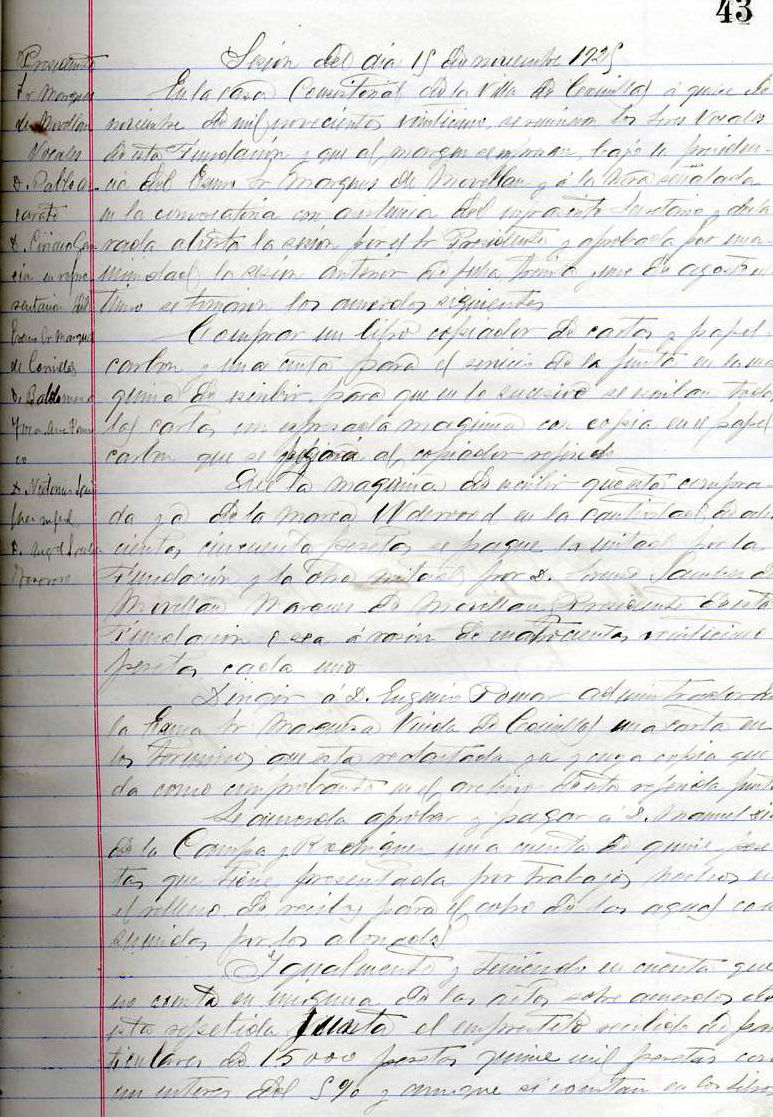 43
Sesión del dia 15 de noviembre 1925
Presidente
Sr Marques
de Movellan
Vocales
D. Pablo
D. Ciriaco Gar
cia en repre
sentacion del
Excmo Sr Marques
de Comillas
D. Baldomero
D. Angel
En la casa Consistorial de la Villa de Comillas á quince de
noviembre de mil novecientos veinticinco, se reunieron los Sres Vocales
de esta Fundación que al margen se expresan, bajo la presiden
cia del Excmo Sr Marques de Movellan y á la hora señalada
en la convocatoria con asistencia del infrascrito Secretario y decla
rada abierta la sesión por el Sr Presidente y aprobada por una
nimidad la sesión anterior de fecha treinta y uno de agosto ul
timo se tomaron los acuerdos siguientes
Comprar un libro copiador de cartas y papel
carbon y una cinta para el servicio de la Junta en la ma
quina de escribir, para que en lo sucesivo se escriban todas
las cartas en expresada maquina con copia en el papel
carbon que se pegará al copiador referido
Que la maquina de escribir que esta compra
da ya de la marca Underwood en la cantidad de ocho
cientas cincuenta pesetas se pague la mitad por la
Fundación y la otra mitad por D. Lorenzo Sanchez de
Movellan Marques de Movellan Presidente de esta
Fundación o sea á razón de cuatrocientas veinticinco
pesetas cada uno
Dirigir á D. Eugenio Pomar administrador de
la Excma Sra Marquesa Viuda de Comillas una carta en
los terminos que esta redactada ya y cuya copia que
da como comprobante en el archivo de esta referida Junta
Se acuerda aprobar y pagar á D. Manuel
de la Campa y Rodriguez una cuenta de quince pese
tas que tiene presentada por trabajos hechos en
el relleno de recibos para el cobro de las aguas con
sumidas por los abonados
Igualmente y teniendo en cuenta que
no consta en ninguna de las actas sobre acuerdos de
esta repetida Junta el emprestito recibido de par
ticulares de 15000 pesetas quince mil pesetas con
un interes del 5% y aunque si constan en los libros